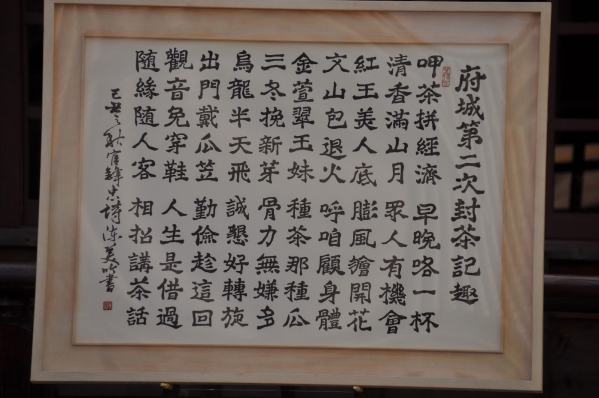 府城第二次封茶記趣
呷茶拼經濟 早晚咯一杯
清香滿山月 眾人有機會
紅玉美人底 膨風籠開花
文山包退火 呼咱顧身體
金萱翠玉妹 種茶那種瓜
三冬挽新芽 骨力無嫌多
烏龍半天飛 誠懇好轉旋
出門戴瓜笠 勤儉趁這回
觀音免穿鞋 人生是借過
隨緣隨人客 相招講茶話